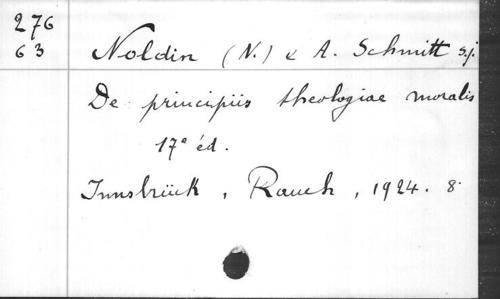 276
63
Noldin (N.) & A. Schmitt s.j.
De principiis theologiae moralis
17ª éd.
Innsbrück, Rauch, 1924. 8°